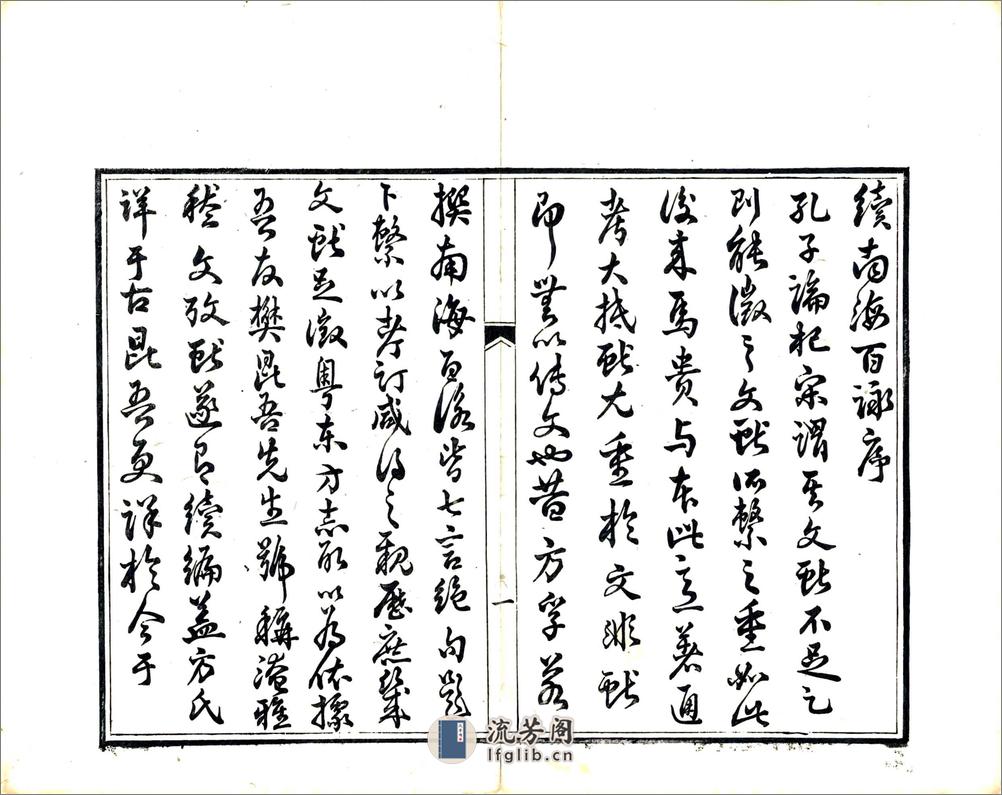 續南海百詠序
孔子論杞宋謂其文獻不足足
則能徵之文獻所繫之重如此
後來馬貴與本此意著通
考大抵獻尤重於文非獻
即無以傳文也昔方孚若
一
撰南海百詠皆七言絕句題
下繫以考訂咸得之親歷庶幾
文獻足徵粵東方志所以為依據
吾友樊昆吾先生號稱淹雅
嵇文攷獻遂有續編蓋方氏
詳于古昆吾更詳於今于
流芳阁
lfglib.cn